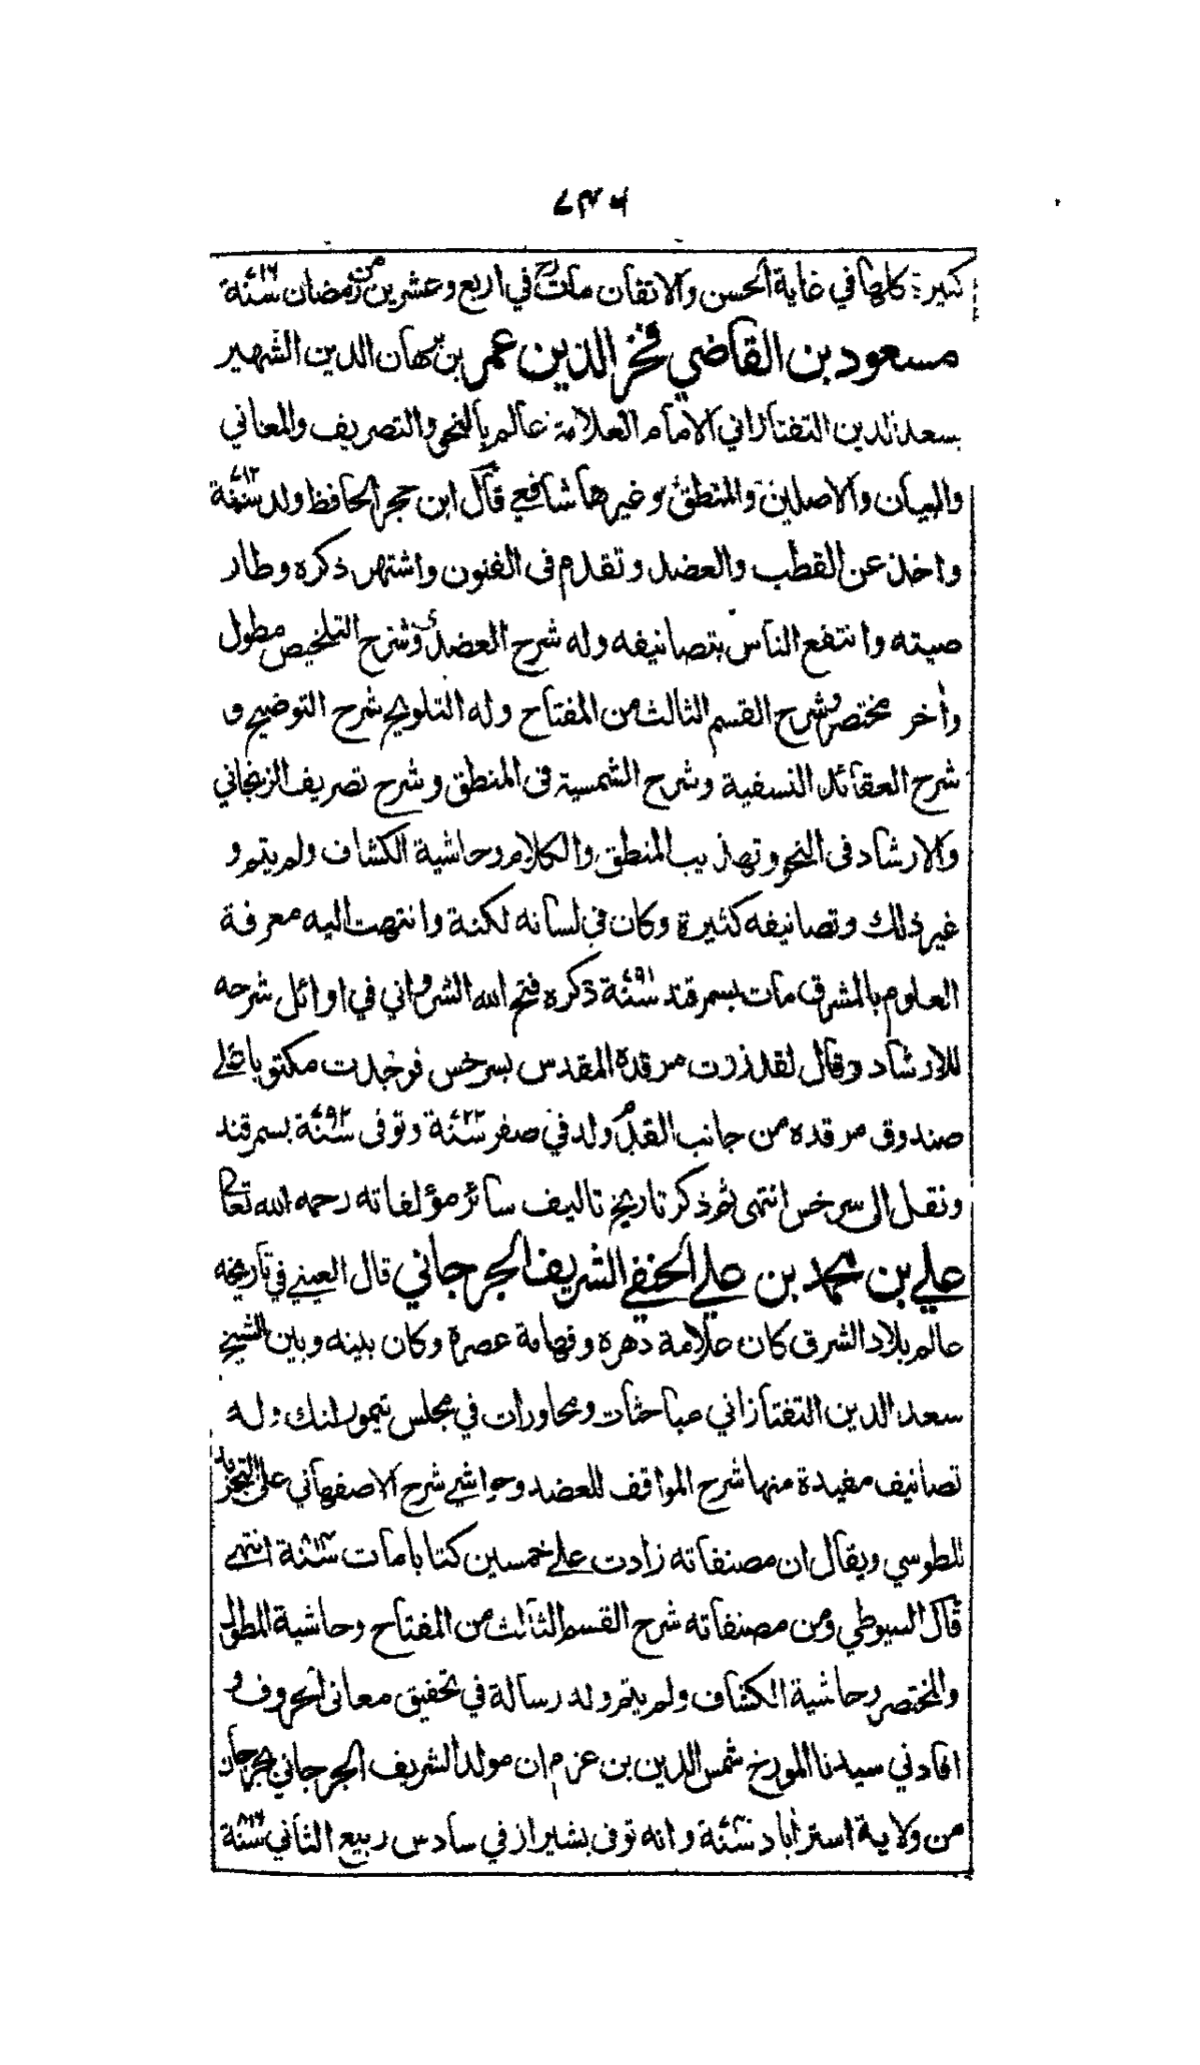 كثيرة كلها في غاية الحسن والاتقان مات رح في اربع وعشرين من رمضان سنة ٧١٦
مسعود بن القاضي فخر الدين عمر بن برهان الدين الشهير
بسعد الدين التفتازاني الامام العلامة عالم بالنحو والتصريف والمعاني
والبيان والاصلين والمنطق وغيرها شافعي قال ابن حجر الحافظ ولد سنة ٧١٢
واخذ عن القطب والعضد وتقدم فى الفنون واشتهر ذكره وطار
صيته وانتفع الناس بتصانيفه وله شرح العضدى وشرح التلخيص مطول
وأخر مختصر وشرح القسم الثالث من المفتاح وله التلويح شرح التوضيح و
شرح العقائد النسفية وشرح الشمسية فى المنطق وشرح تصريف الزنجاني
والارشاد فى النحو وتهذيب المنطق والكلام وحاشية الكشاف ولم يتم و
غير ذلك وتصانيفه كثيرة وكان في لسانه لكنة وانتهت اليه معرفة
العلوم بالمشرق مات بسمرقند سنة ٧٩١ ذكره فتح الله الشرواني في اوائل شرحه
للارشاد وقال لقد زرت مرقده المقدس بسرخس فوجدت مكتوبا على
صندوق مرقده من جانب القدم ولد في صفر سنة ٧٢٢ وتوفى سنة ٧٩٢ بسمرقند
ونقل الى سرخس انتهى ثم ذكر تاريخ تاليف سائر مؤلفاته رحمه الله تعالى
علي بن محمد بن علي الحنفي الشريف الجرجاني قال العيني في تاريخه
عالم بلاد الشرق كان علامة دهره وفهامة عصره وكان بينه وبين الشيخ
سعد الدين التفتازاني مباحثات ومحاورات في مجلس تيمور لنك وله
تصانيف مفيدة منها شرح المواقف للعضد وحواشي شرح الاصفهاني على التجريد
للطوسي ويقال ان مصنفاته زادت على خمسين كتابا مات سنة ٨١٤ انتهى
قال السيوطي ومن مصنفاته شرح القسم الثالث من المفتاح وحاشية المطول
والمختصر وحاشية الكشاف ولم يتم وله رسالة في تحقيق معانى الحروف و
افادني سيدنا المورخ شمس الدين بن عزم ان مولد الشريف الجرجاني بجرجان
من ولاية استراباد سنة وانه توفى بشيراز في سادس ربيع الثاني سنة ٨١٦